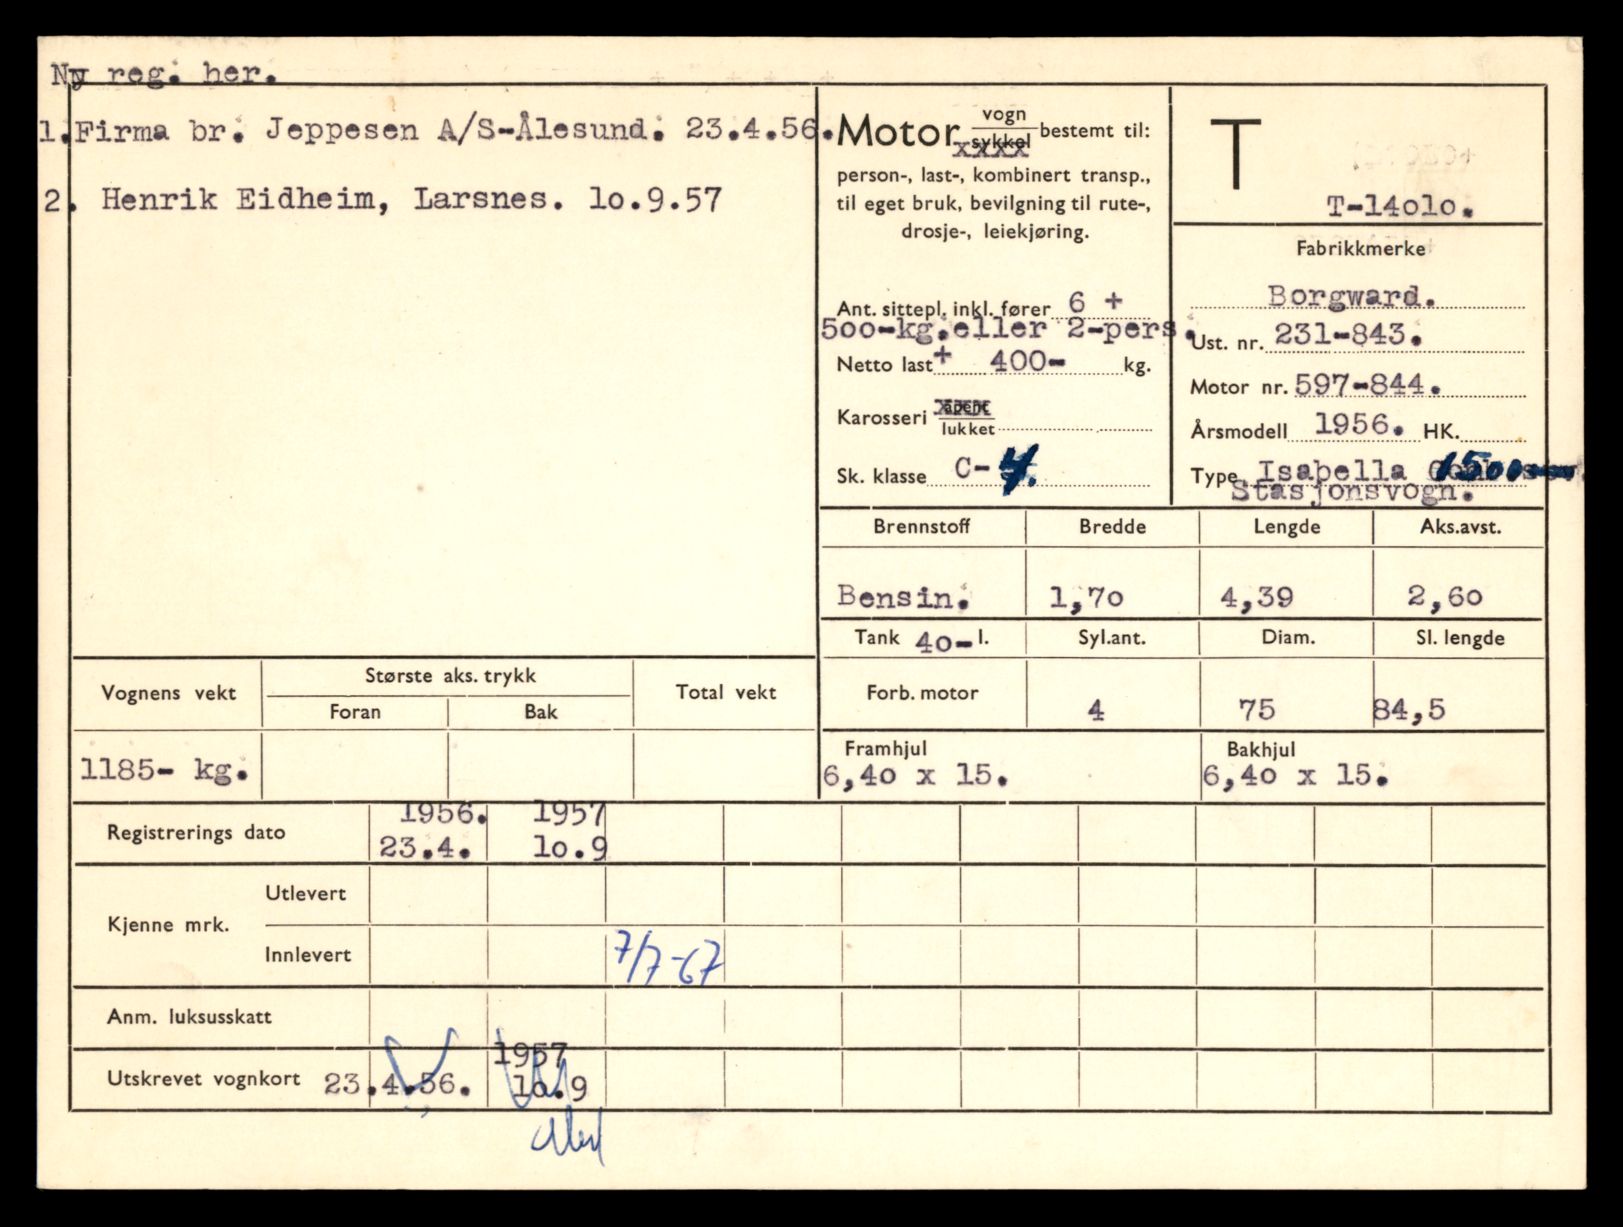 Ny reg. her.
1. Firma br. Jeppesen A/S-Ålesund. 23.4.56.
2. Henrik Eidheim, Larsnes. lo.9.57
Motor vogn sykkel bestemt til:
person-, last-, kombinert transp.,
til eget bruk, bevilgning til rute-,
drosje-, leiekjøring.
Ant. sittepl. inkl. fører 6 +
5oo-kg.eller 2-pers.
Netto last + 400- kg.
Karosseri åpent lukket
Sk. klasse C-4.
T
T-14olo.
Fabrikkmerke
Borgward.
Ust. nr. 231-843.
Motor nr. 597-844.
Årsmodell 1956. HK.
Type Isabella 1500
Stasjonsvogn.
Brennstoff Bredde Lengde Aks.avst.
Bensin. 1,7o 4,39 2,6o
Tank 4o- l. Syl.ant. Diam. Sl. lengde
Forb. motor 4 75 84,5
Framhjul Bakhjul
6,4o x 15. 6,4o x 15.
Vognens vekt Største aks. trykk Total vekt
Foran Bak
1185- kg.
1956. 1957
Registrerings dato 23.4. lo.9
Kjenne mrk. Utlevert
Innlevert 7/7-67
Anm. luksusskatt
1957
Utskrevet vognkort 23.4.56. lo.9